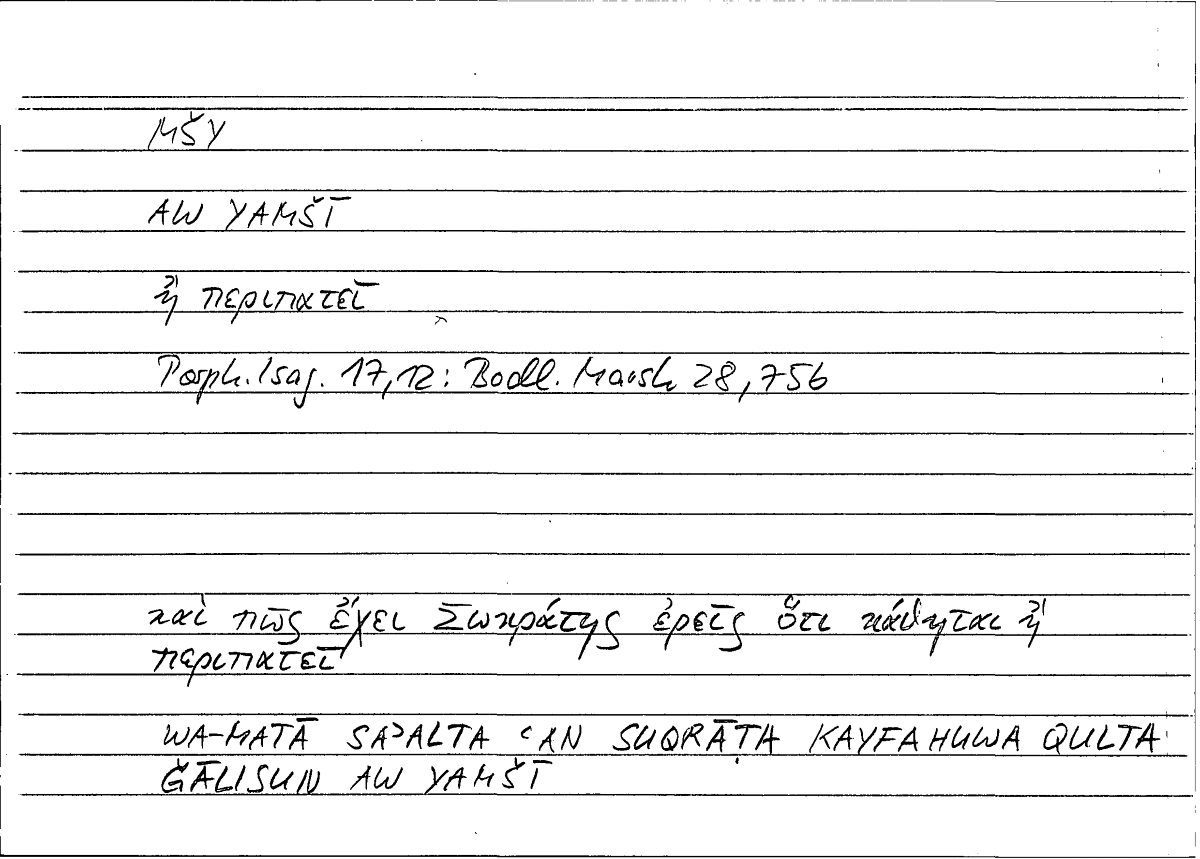 MŠY
AW YAMŠĪ
ἢ περιπατεῖ
Porph. Isag. 17,12: Bodl. Marsh 28,75b
καὶ πῶς ἔχει Σωκράτης ἐρεῖς ὅτι κάθηται ἢ
περιπατεῖ
WA-MATĀ SAʾALTA ʿAN SUQRĀṬA KAYFA HUWA QULTA
ĞĀLISUN AW YAMŠĪ